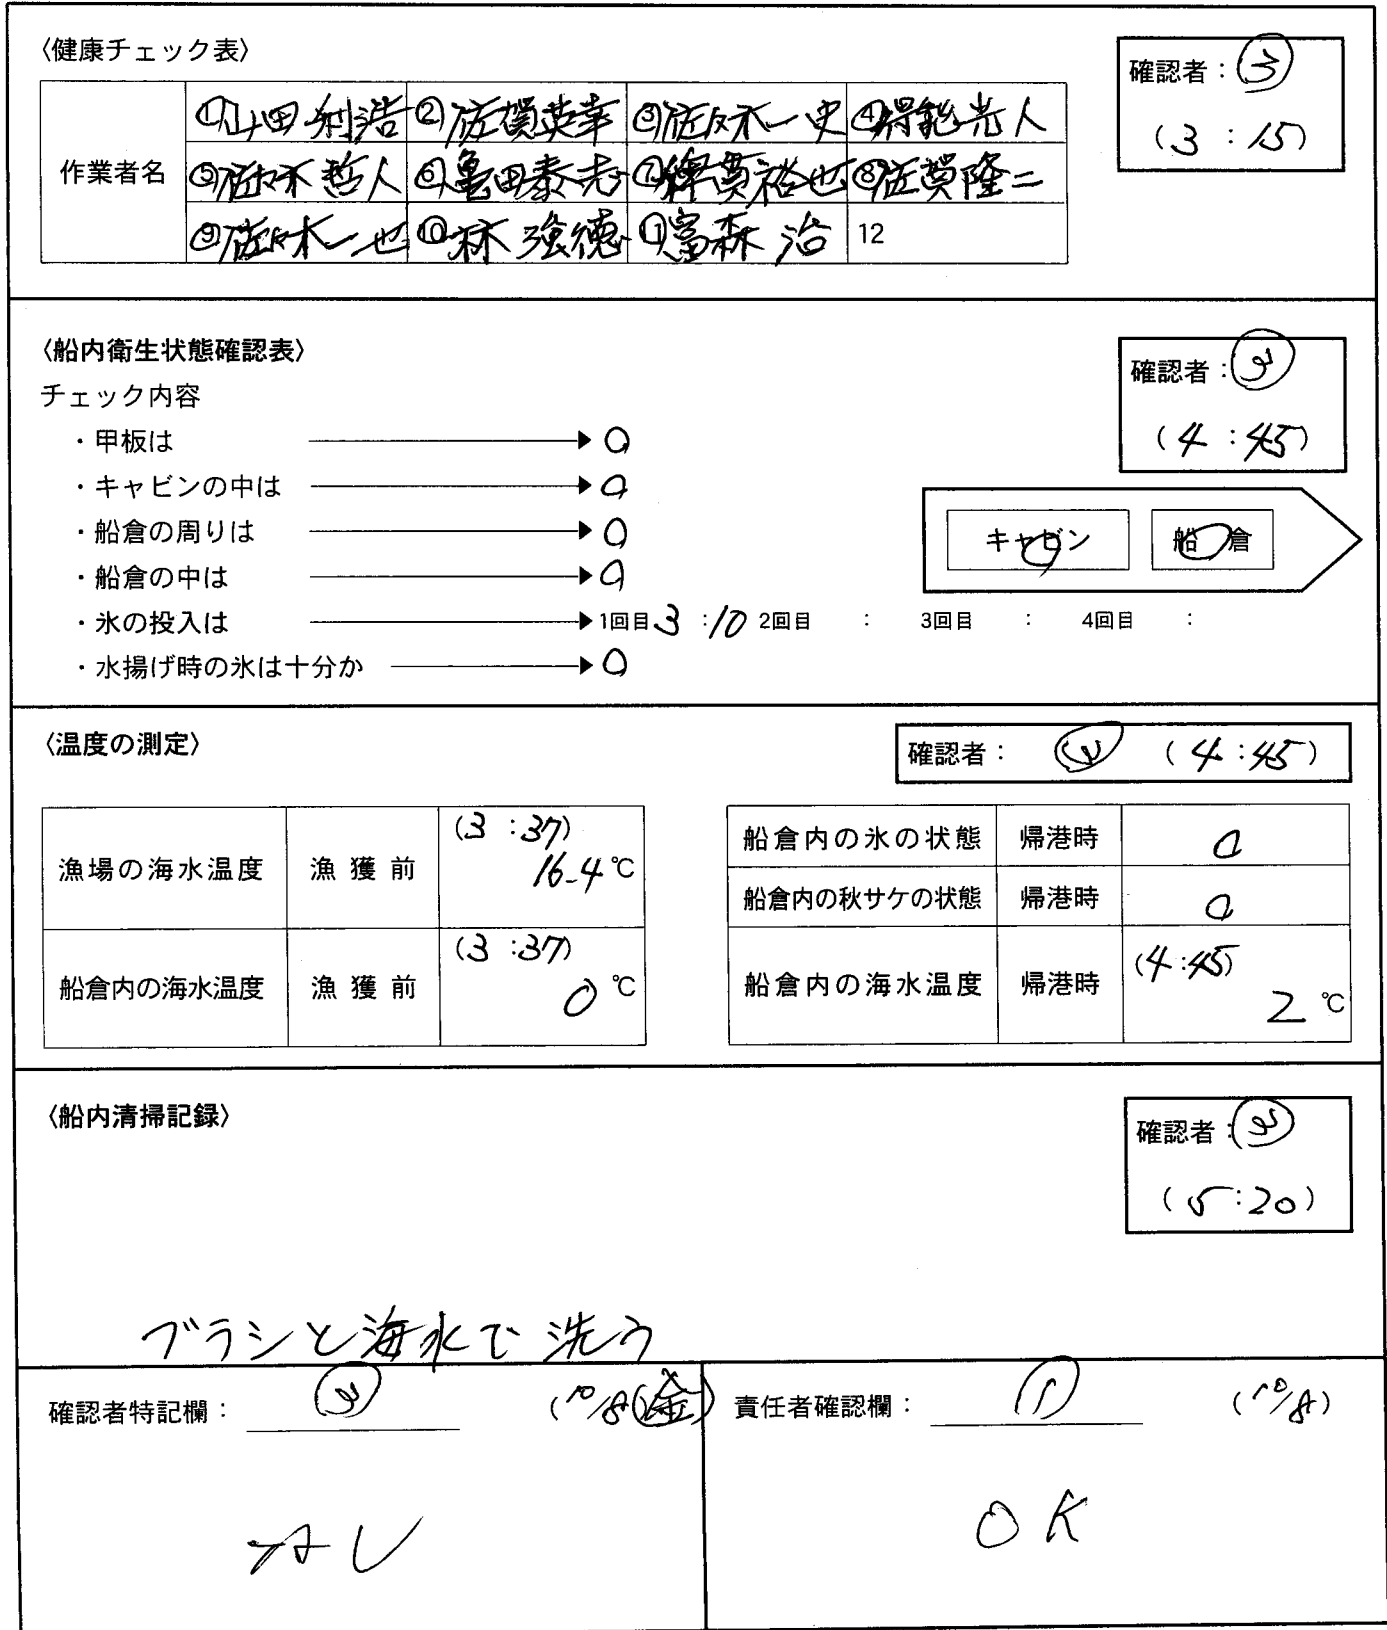 〈健康チェック表〉
確認者：③
(3：15)
作業者名
①山田利浩 ②佐賀英幸 ③佐々木一史 ④得能光人
⑤佐々木哲人 ⑥亀田泰志 ⑦裕也 ⑧佐賀隆二
⑨佐々木一也 ⑩林強徳 ⑪富森治 12
〈船内衛生状態確認表〉
確認者：③
(4：45)
チェック内容
・甲板は ○
・キャビンの中は ○
・船倉の周りは ○
・船倉の中は ○
キャビン 船倉
・氷の投入は 1回目 3：10 2回目 ： 3回目 ： 4回目 ：
・水揚げ時の氷は十分か ○
〈温度の測定〉
確認者： ③ (4：45)
漁場の海水温度 漁獲前 (3：37) 16.4℃
船倉内の海水温度 漁獲前 (3：37) 0℃
船倉内の氷の状態 帰港時 ○
船倉内の秋サケの状態 帰港時 ○
船倉内の海水温度 帰港時 (4：45) 2℃
〈船内清掃記録〉
確認者：③
(5：20)
ブラシと海水で洗う
確認者特記欄： ③ (10/8(金))
ナシ
責任者確認欄： ① (10/8)
OK